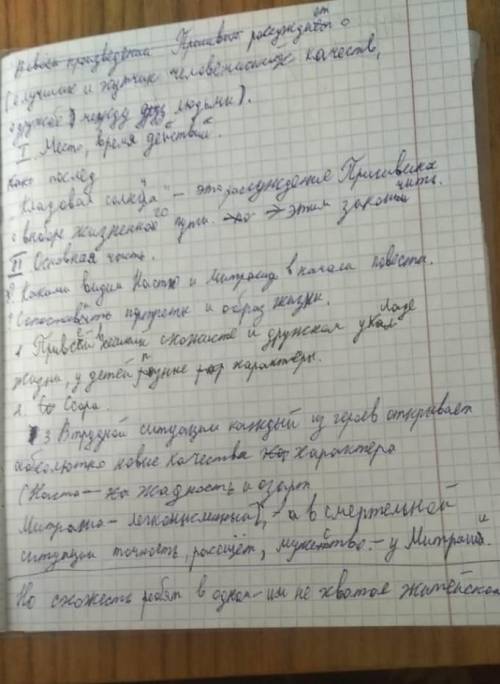 произведении Пришвин рассуждает о
(о лучших и жутких человеческих качеств,
о дружбе) между людьми).
I Место, время действий.
как послед
"Кладовая солнца" – это рассуждение Пришвина
о выборе жизненного пути. этим закончить.
II Основная часть.
Какими видим Настю и Митрашу в начале повести.
Сопоставить портреты и образ жизни.
1 При всей схожести и дружном укладе
жизни, у детей разные характеры.
2. Ссора.
3 В трудной ситуации каждый из героев открывает
абсолютно новые качества характера
(Настя – жадность и азарт
Митраша – легкомысленный, – а в смертельной
ситуации точность, расчёт, мужество. – у Митраши.
Но схожесть ребят в одном – им не хватает житейской